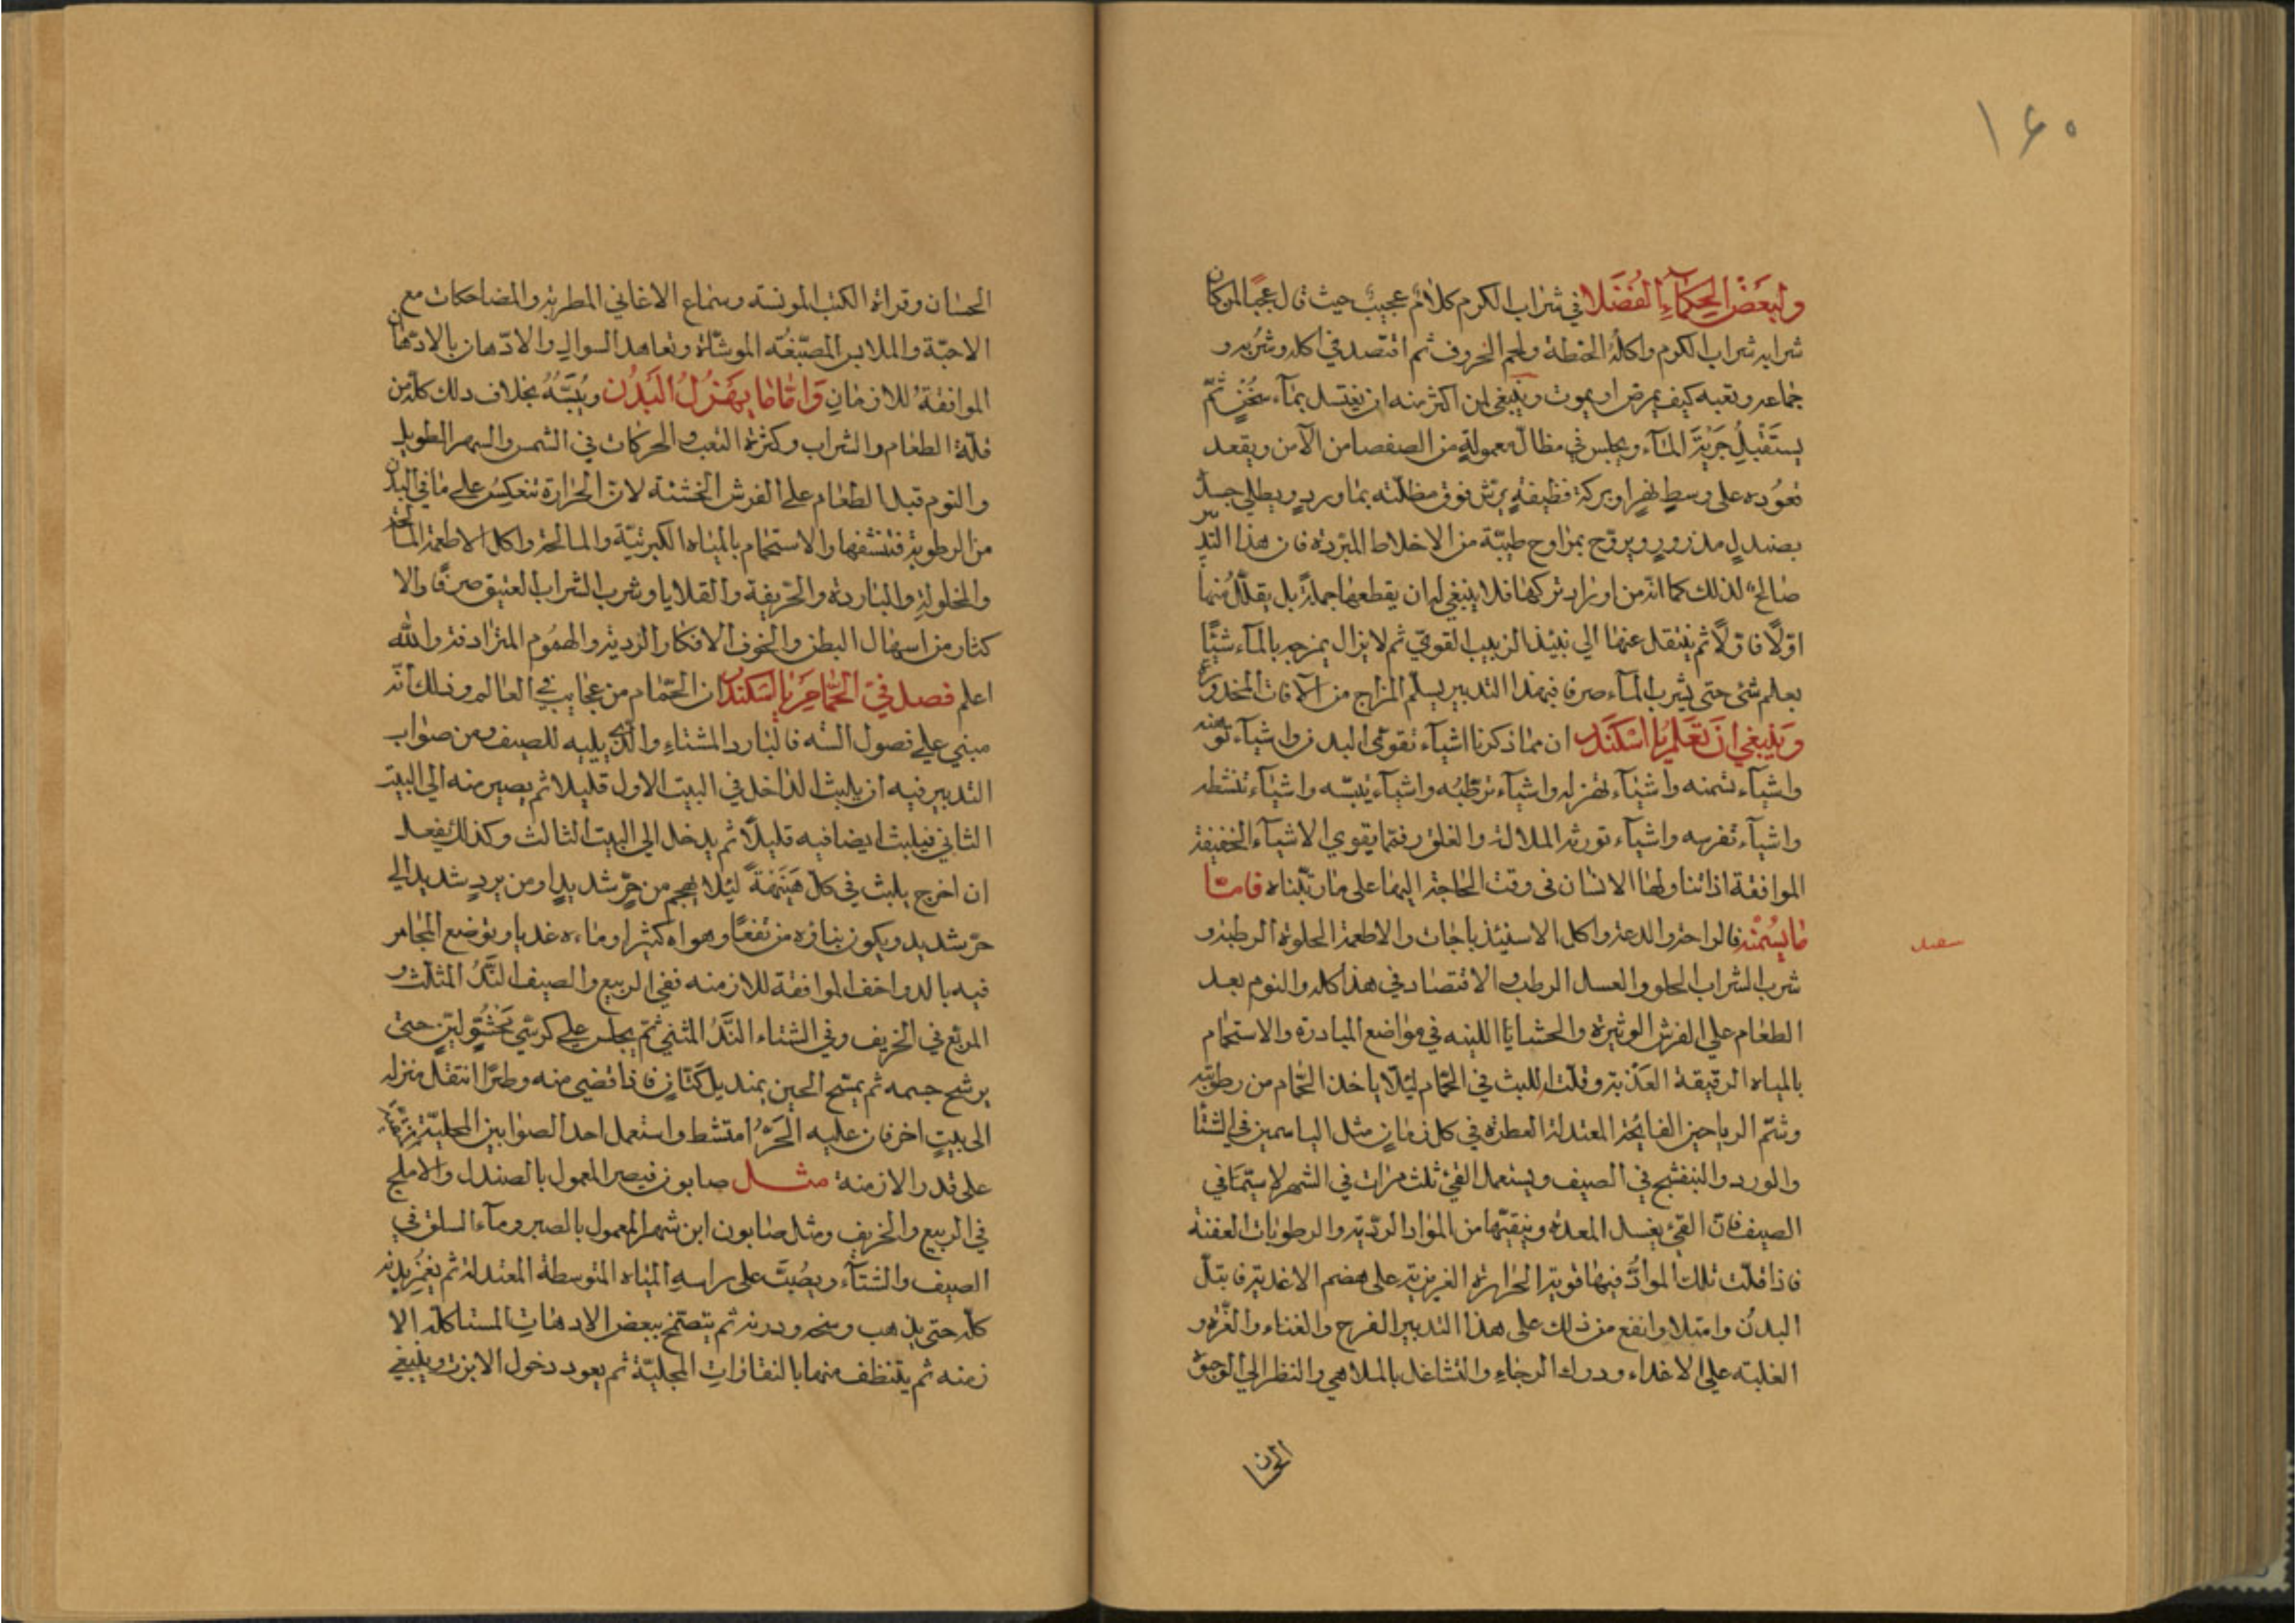 ١٤٠
ولبعض الحكماء الفضلا في شراب الكرم كلام عجيب حيث قال عجبًا لمن كان
شرابه شراب الكرم واكله الحنطة ولحم الخروف ثم اقتصد في اكله وشربه و
جماعه وتعبه كيف يمرض او يموت وينبغي لمن اكثر منه ان يغتسل بمآء سخن ثمّ
يستقبل جرية المآء ويجلس في مظال معمولة من الصفصا من الآمن ويقعد
تعوده على وسط نهر او بركة نظيفة يرش فوق مظلته بماورد ويطلي جسده
بصندل مذرور ويروح بمراوح طيبة من الاخلاط المبردة فان هذا التدبير
صالح لذلك كما انه من اراد تركها فلا ينبغي له ان يقطعها جملة بل يقلل منها
اوّلًا فاوّلًا ثم ينتقل عنها الي نبيذ الزبيب القوي ثم لا يزال يمزجه بالمآء شيئًا
بعلم شئ حتى يشرب المآء صرفا فبهذا التدبير يسلم المزاج من الآفات المخدورة
وينبغي ان تعلم يا اسكندر ان مما ذكرنا اشيآء تقوي البدن واشيآء توهنه
واشيآء تسمنه واشيآء تهزله واشيآء ترطّبه واشيآء تيبّسه واشيآء تنشطه
واشيآء تفرحه واشيآء تورثه الملالة والقلق فمما يقوي الاشيآء الخفيفة
الموافقة اذا تناولها الانسان في وقت الحاجة اليها على ما رتّبناه فامّا
ما يسمنه فالراحة والدعة واكل الاسفيذباجات والاطعمة الحلوة الرطبة و
شرب الشراب الحلو والعسل الرطب والاقتصاد في هذا كله والنوم بعد
الطعام علي الفرش الوثيرة والحشايا اللينه في مواضع المبادرة والاستحمام
بالمياه الرقيقة العذبة وقلت اللبث في الحمّام ليلا ياخذ الحمّام من رطوبته
وشم الرياحين الفايحة المعتدلة العطرة في كل زمان مثل الياسمين في الشتا
والورد والبنفشج في الصيف ويستعمل القئ ثلث مرات في الشهر لا سيّما في
الصيف فان القئ يغسل المعدة وينقيها من المواد الرديّة والرطوبات العفنة
فاذا قلت تلك المواد فيها قوية الحرارة الغريزية على هضم الاغدية فابتلّ
البدن وامتلا وانفع من ذلك على هذا التدبير الفرح والغناء والغرة و
الغلبة علي الاعداء ودرك الرجاء والتشاغل بالملاهي والنظر الي الوجوه
الحسان
الحسان وقراة الكتب المونسة وسماع الاغاني المطربة والمضاحكات مع
الاحبّة والملابس المصبّغة الموشّاة وتعاهد السواك والادّهان بالادّهان
الموافقة للازمان وامّا ما يهزل البدن ويُيبّسه بخلاف دلك كله من
قلّة الطعام والشراب وكثرة التعب والحركات في الشمس والسهر الطويل
والنوم قبل الطعام على الفرش الخشنة لان الحرارة تنعكس علي ما في البدن
من الرطوبة فتنشفها والاستحمام بالمياه الكبريتيّة والمالحة واكل الاطعمة المالحة
والمخلولة والباردة والحرّيفة والقلايا وشرب الشراب العتيق صرفًا والا
كثار من اسهال البطن والخوف الافكار الردية والهموم المترادفة والله
اعلم فصل في الحمّام يا اسكندر ان الحمّام من عجايب في العالم وذلك انّه
مبني علي فصول السنه فالبارد المشتاء والذي يليه للصيف ومن صواب
التدبير فيه ان يلبث الداخل في البيت الاول قليلا ثم يصير منه الي البيت
الثاني فيلبث ايضا فيه قليلًا ثم يدخل الي البيت الثالث وكذلك يفعل
ان اخرج يلبث في كل هنيهة ليلا يهجم من حرّ شديد او من برد شديد الي
حرّ شديد ويكون بناؤه مرتفعًا وهواه كثيرا وماءه غدبا ويوضع المجامر
فيه بالدواخف الموافقة للازمنه ففي الربيع والصيف النّد المثلث و
المربّع في الخريف وفي الشتاء النّد المثنى ثمّ يجلس علي كرسي لين حتي
يرشح جسمه ثم يمسح الحين بمنديل كتان فاذا قضي منه وطرًا انتقل منزله
الى بيت اخر فان عليه الحرّ امتشط واستعمل احد الصوابين المجليّة
على قدر الازمنة مثل صابون قيصر المعمول بالصندل والاملج
في الربيع والخريف ومثل صابون ابن شهر المعمول بالصبر ومآء السلق في
الصيف والشتآء ويصبّ على راسه المياه المتوسطة المعتدلة ثم يغمز بدنه
كله حتى يذهب وسخه ودرنه ثم يتصتمخ ببعض الادهنات المستاكله الا
زمنه ثم يتنظف منها بالنقازات المجليّة ثم يعود دخول الابزن وينبغي